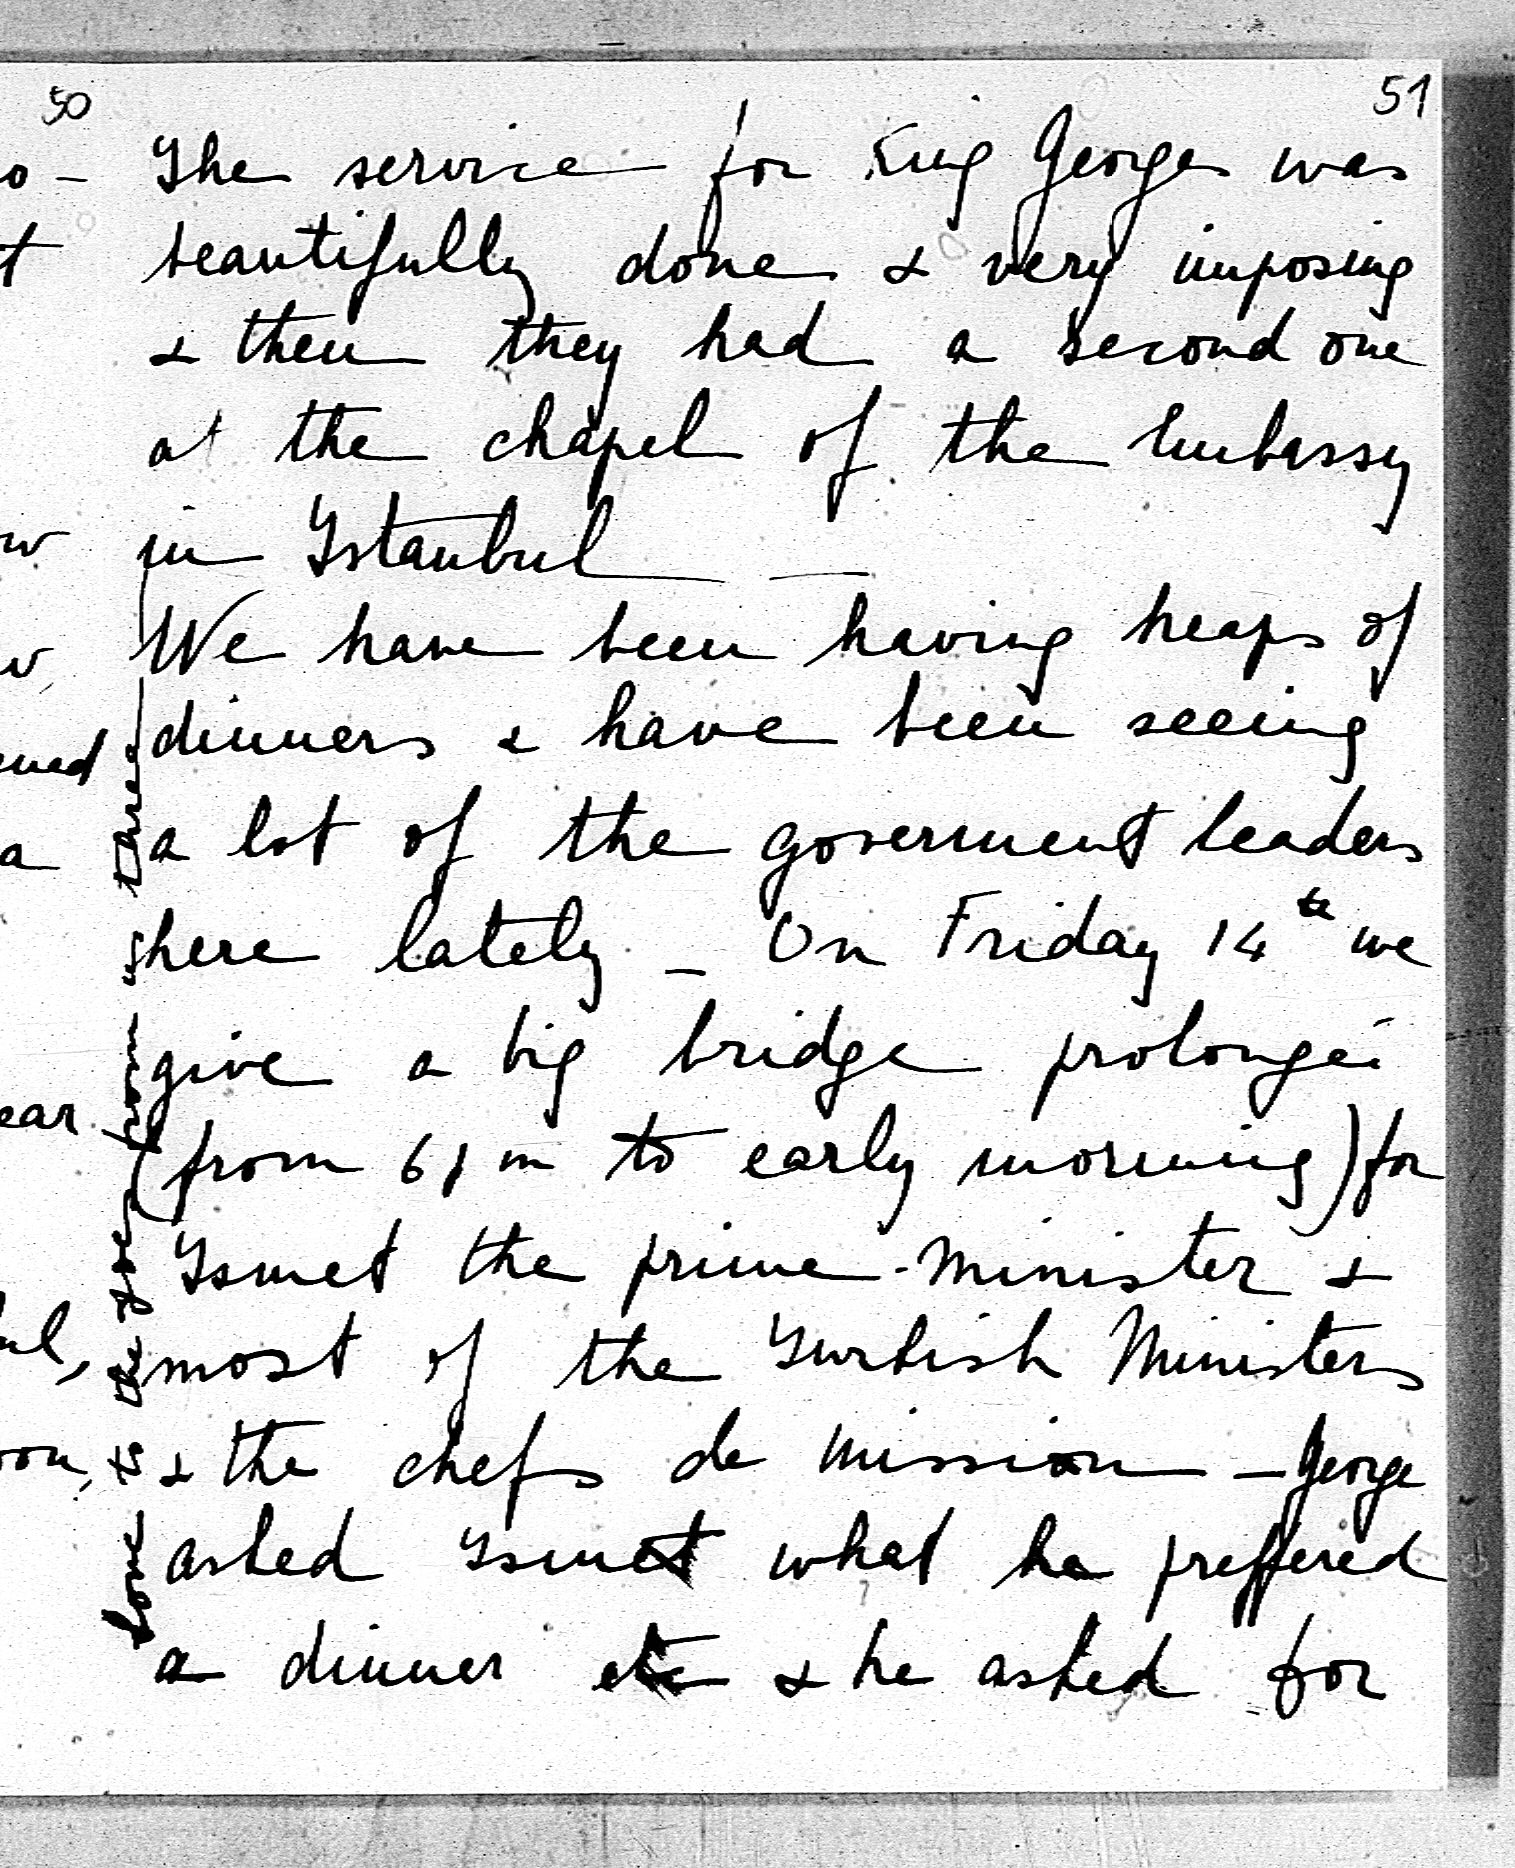 50
51
The service for King George was
beautifully done & very imposing
& then they had a second one
at the chapel of the Embassy
in Istanbul —
We have been having heaps of
dinners & have been seeing
a lot of the goverment leaders
here lately – On Friday 14th we
give a big bridge prolongé
(from 6 p m to early morning) for
Ismet the prime-Minister &
most of the Turkish Ministers
& the chefs de mission – George
asked Ismet what he preffered
a dinner etc & he asked for
love to the Joe from us three